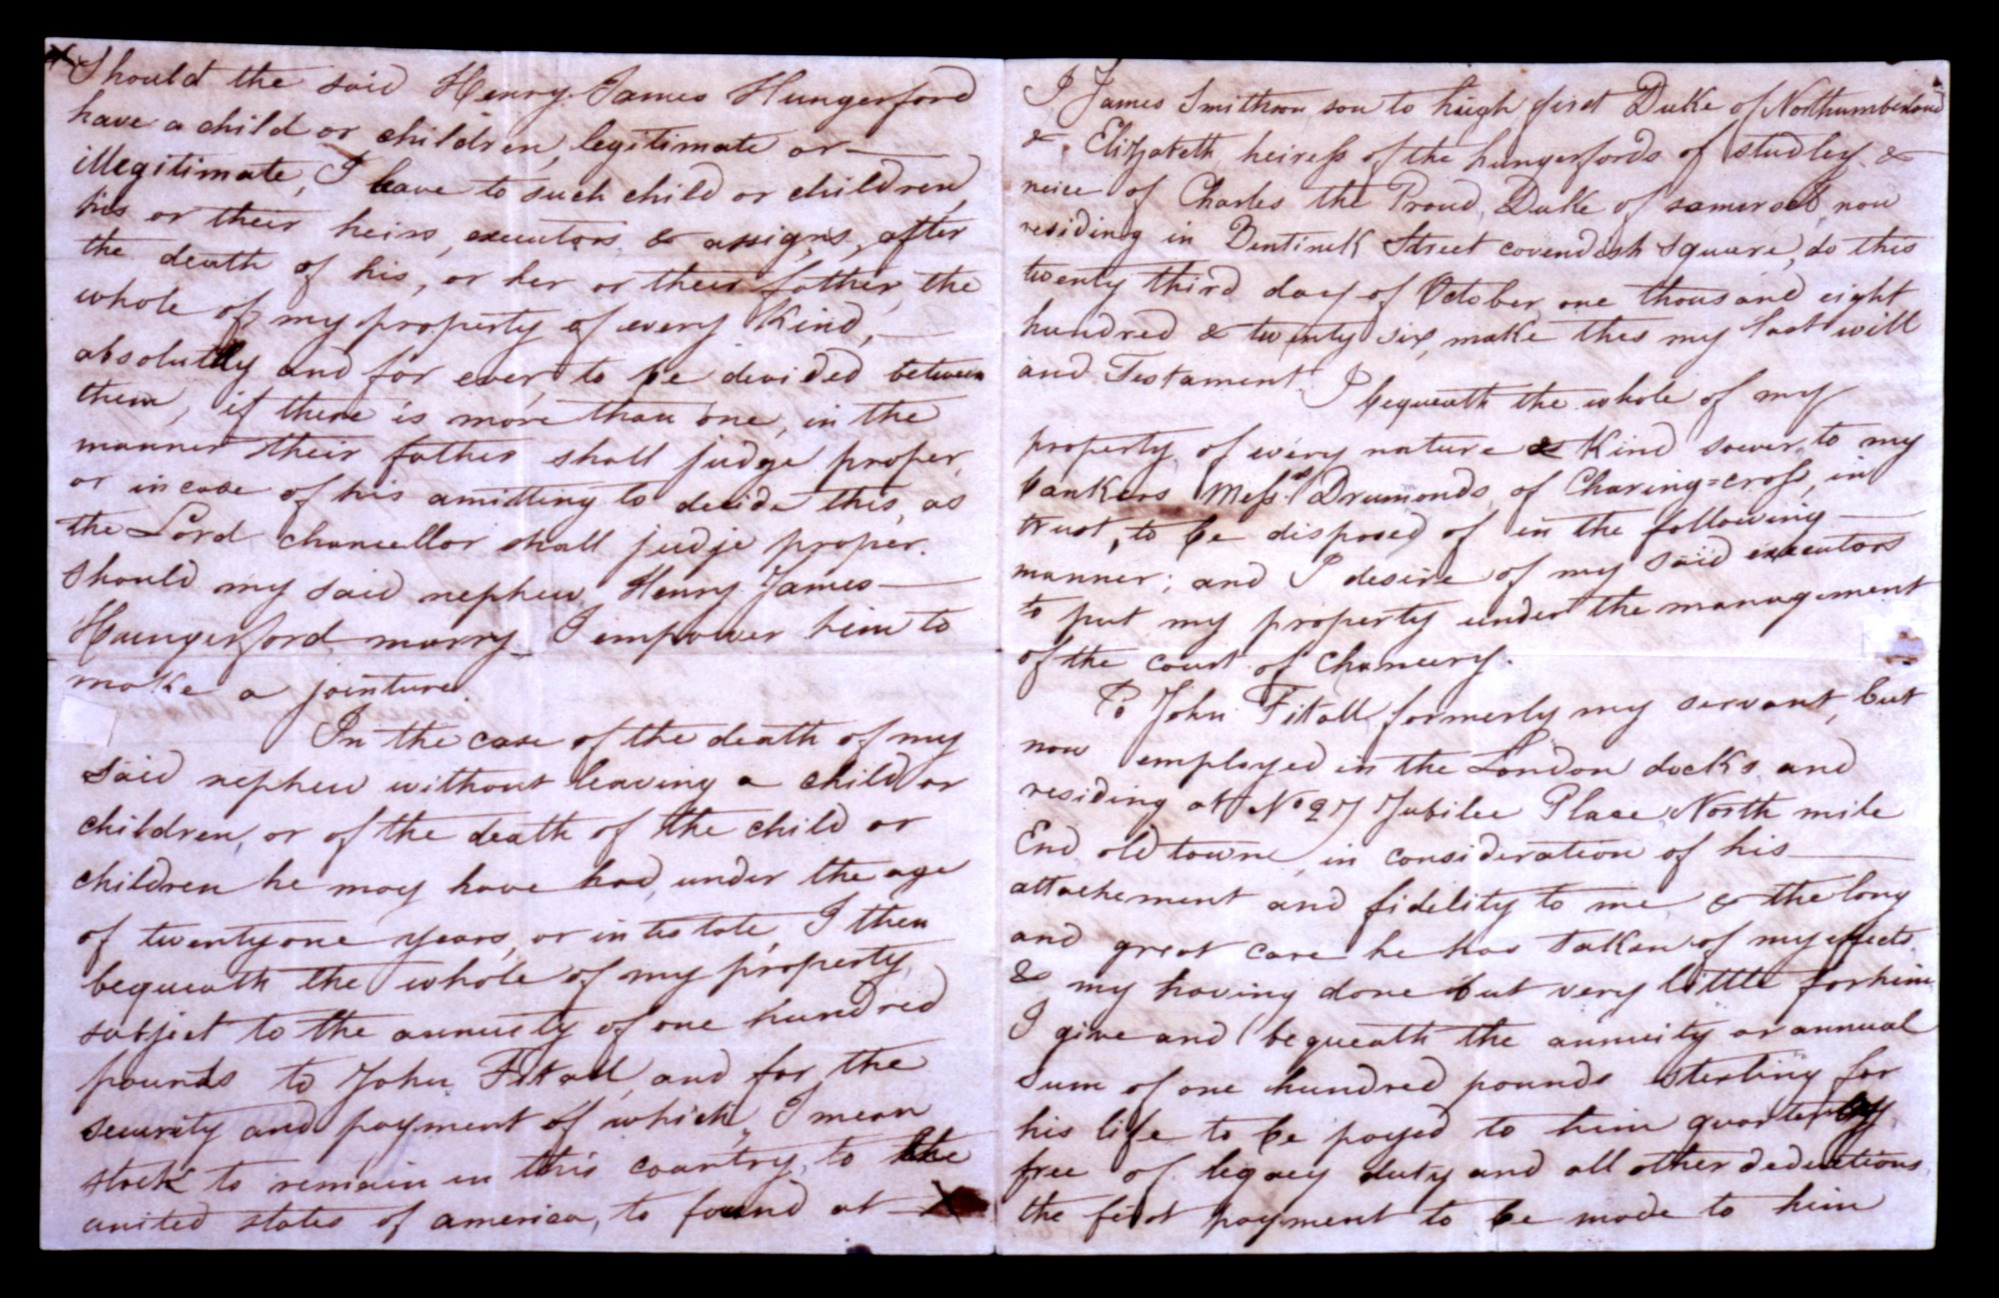 Should the said Henry James Hungerford
have a child or children, legitimate or —
illegitimate, I leave to such child or children,
his or their heirs, executors, & assigns, after
the death of his, or her or their father, the
whole of my property of every kind, —
absolutely and for ever to be devided between
them, if there is more than one, in the
manner their father shall judge proper,
or in case of his omitting to decide this, as
the Lord chancellor shall judje proper.
Should my said nephew Henry James —
Hungerford marry I empower him to
make a jointure.
In the case of the death of my
said nephew without leaving a child or
children, or of the death of the child or
children he may have had under the age
of twentyone years, or intestate, I then
bequeath the whole of my property,
subject to the annuity of one hundred
pounds to John Fitall, and for the
security and payment of which, I mean
stock to remain in this country, to the
united states of america, to found at — X
I James Smithson son to hugh first Duke of Northumberland
& Elizabeth heiress of the hungerfords of studley, &
neice of Charles the Proud Duke of somerset now
residing in Bentinck Street cavendish square, do this
twenty third day of October one thousand eight
hundred & twenty six, make this my last will
and Testament I bequeath the whole of my
property of every nature & Kind soever to my
bankers Mess.rs Drumonds of Charing=cross, in
trust, to be disposed of in the following —
manner; and I desire of my said executors
to put my property under the management
of the court of chancery.
To John Fitall formerly my servant, but
now employed in the London docks and
residing at No 27 Jubilee Place North mile
End old town, in consideration of his —
attachement and fidelity to me & the long
and great care he has taken of my effects,
& my having done but very little for him
I give and bequeath the annuity or annual
sum of one hundred pounds sterling for
his life to be payed to him quarterly
free of legacy duty and all other deductions
the first payment to be made to him